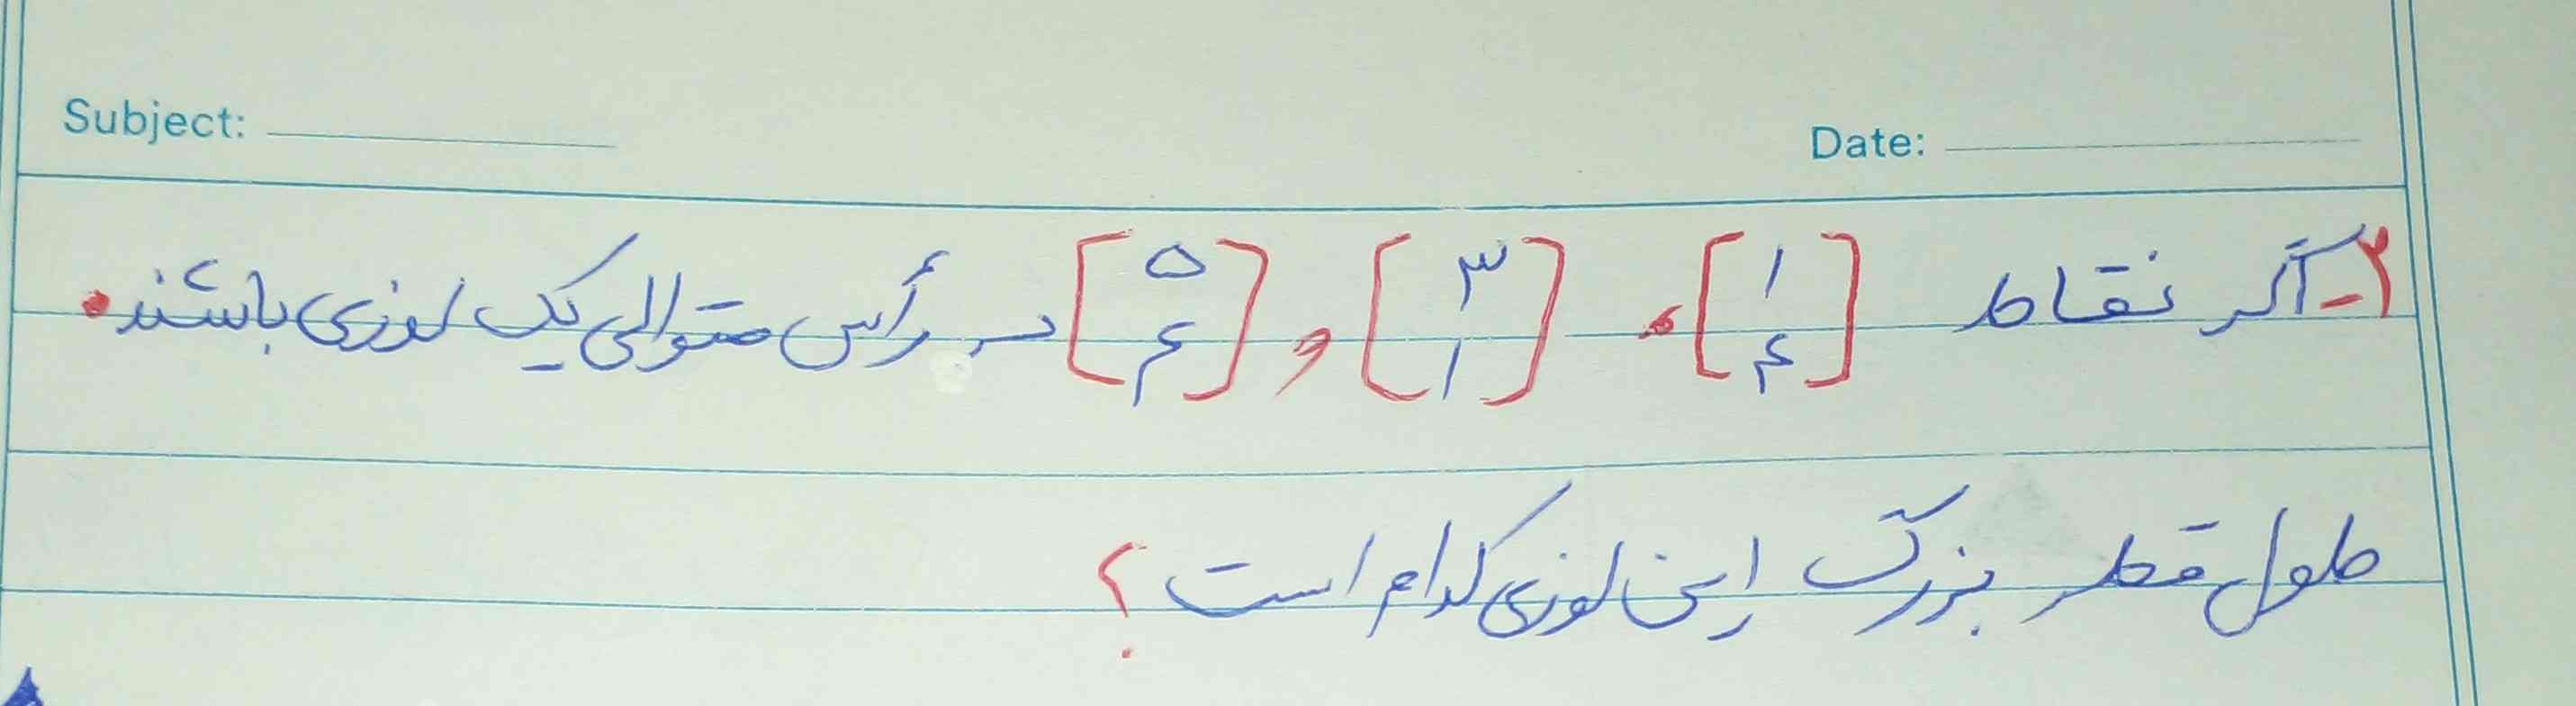 Subject: Date:
۲- اگر نقاط [۱ ۴]، [۳ ۱] و [۵ ۴] سه رأس متوالی یک لوزی باشند.
طول قطر بزرگ این لوزی کدام است؟